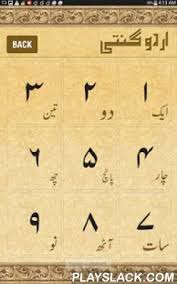 4:13 AM
BACK
اردو گنتی
۱ ۲ ۳
ایک دو تین
۴ ۵ ۶
چار پانچ چھ
۷ ۸ ۹
سات آٹھ نو
PLAYSLACK.COM